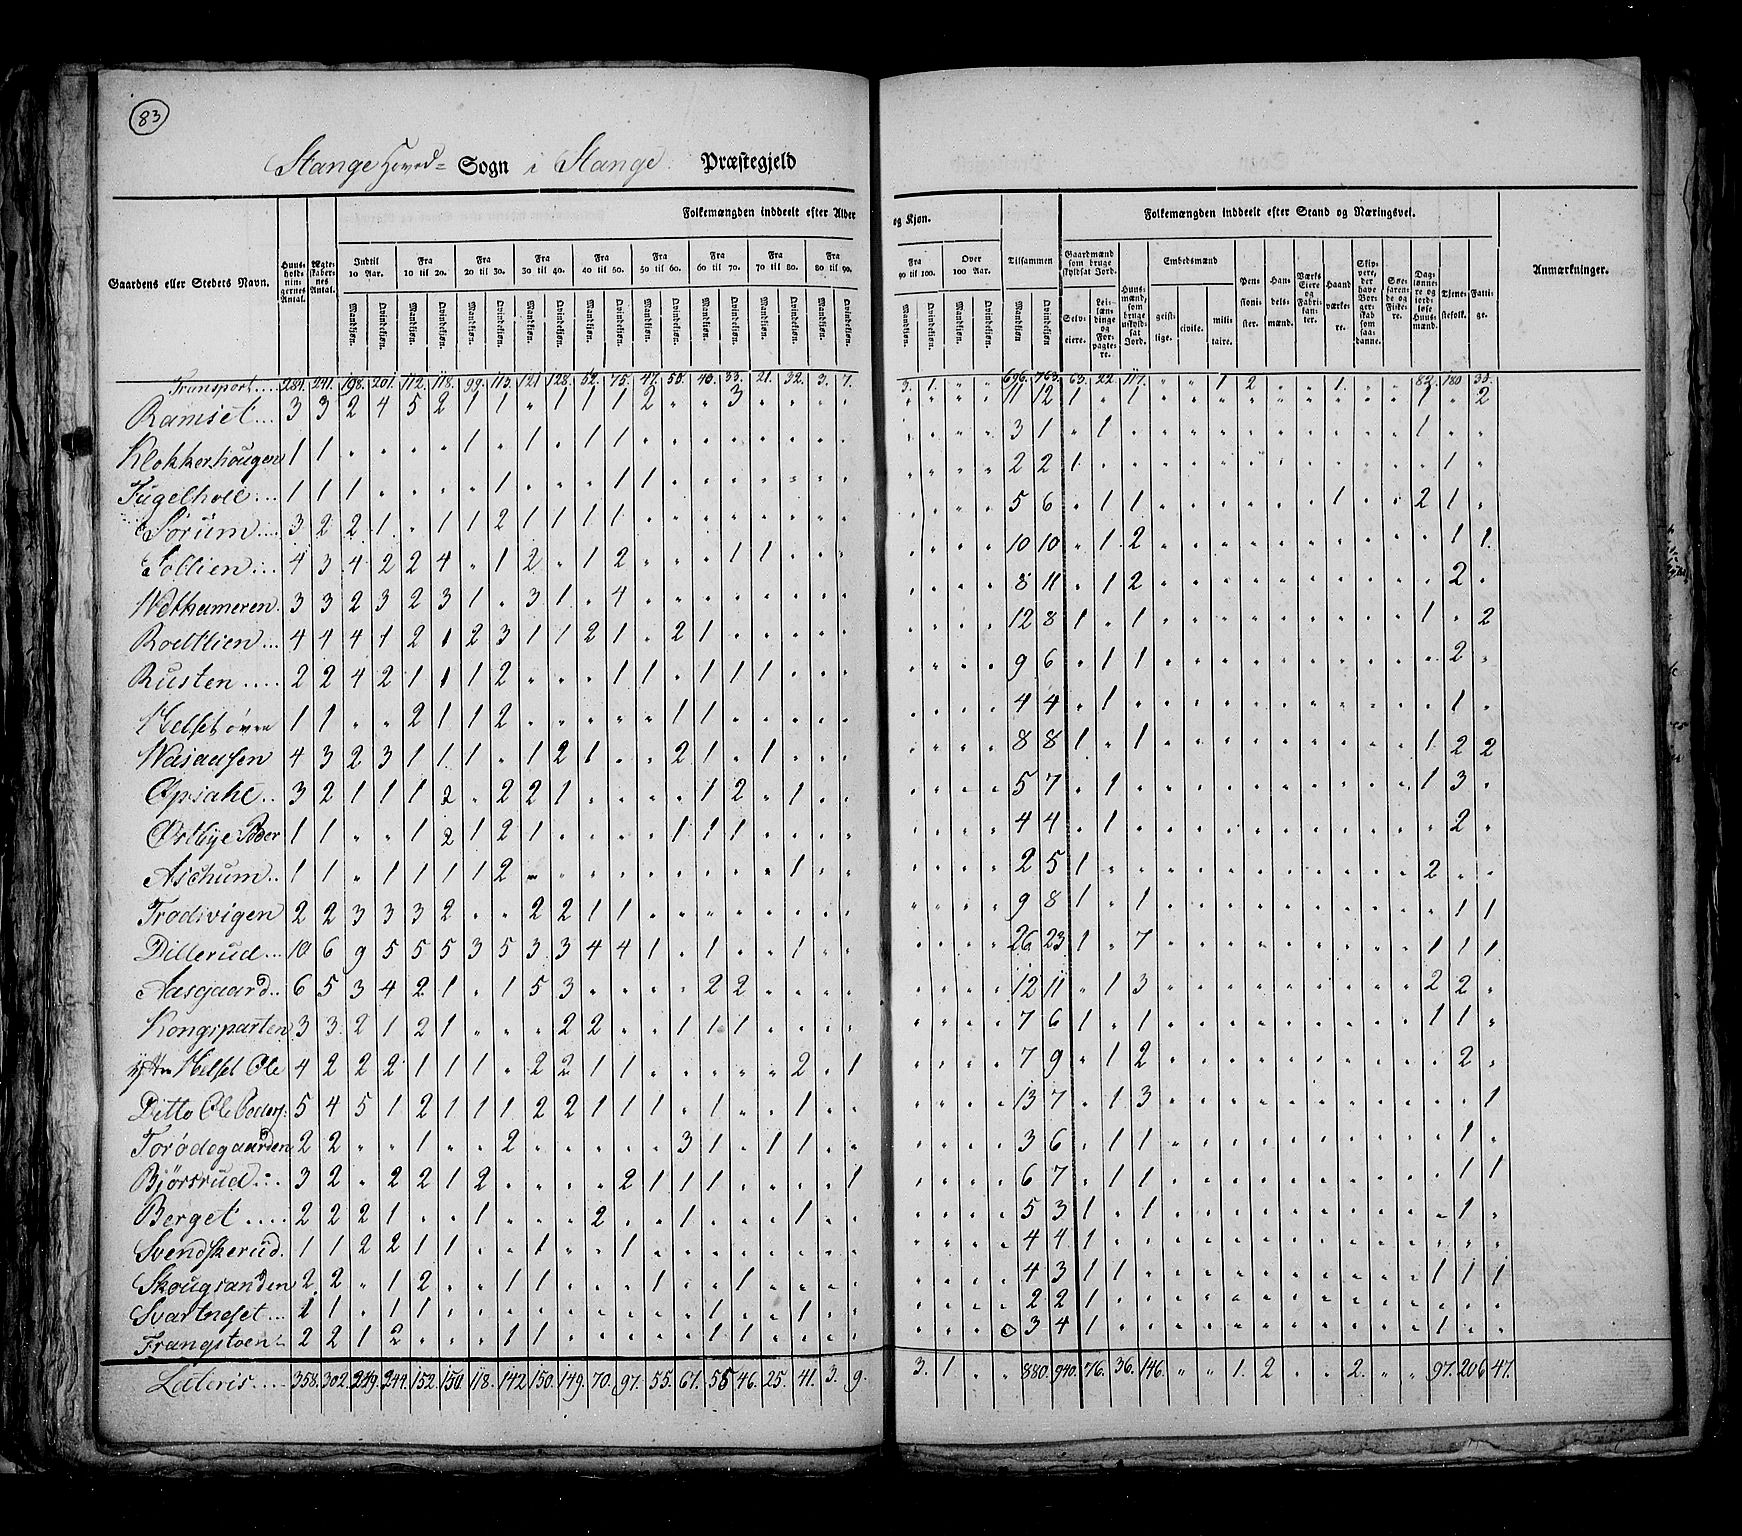 83
Stange Hoved= Sogn i Stange Præstegjeld
Gaardens eller Stedets Navn.
Huus-holdnin-gernes Antal.
Ægte-skaber-nes Antal.
Folkemængden inddeelt efter Alder og Kjøn.
Indtil 10 Aar. Fra 10 til 20. Fra 20 til 30. Fra 30 til 40. Fra 40 til 50. Fra 50 til 60. Fra 60 til 70. Fra 70 til 80. Fra 80 til 90. Fra 90 til 100. Over 100 Aar. Tilsammen
Mandkjøn. Qvindekjøn.
Folkemængden inddeelt efter Stand og Næringsvei.
Gaardmænd som bruge skyldsat Jord.
Selv-eiere. Lei-lændinge og For-pagte-re.
Huus-mænd, som bruge uskyld-sat Jord.
Embedsmænd
geist-lige. civile. mili-taire.
Pen-sioni-ster. Han-dels-mænd. Værks Eiere og Fabri-kan-ter. Haand-værke-re. Skip-pere, der have Bor-ger-skab som saa-danne. Søe-faren-de og Fiske-re. Dag-lønne-re og jord-løse Huus-mænd. Tjene-stefolk. Fatti-ge.
Anmærkninger.
Transport.... 284. 241. 198. 201. 112. 118. 99. 113. 121 128. 52. 75. 47. 50. 40. 33. 21. 32. 3. 7. 3. 1. " " 696. 763. 63. 22. 117. " " 1 2 " " 1. " " 82. 180 33.
Ramset... 3 3 2 4 5 2 1 1 " 1 1 1 2 " " 3 " " " " " " " " 11 12 1 " 1 " " " " " " " " " 1 " 2
Klokkerhougen 1 1 " " " " 1 " 1 " 1 1 " " " " " " " " " " " " 3 1 " 1 " " " " " " " " " " 1 " "
Fugelhoel... 1 1 1 " " " " 1 " " " 1 1 " " " " " " " " " " " 2 2 1 " " " " " " " " " " " " 1 "
Sørum.... 3 2 2 1 " 1 1 2 1 1 1 1 " " " " " " " " " " " " 5 6 " 1 1 " " " " " " 1 " " 2 1 "
Sollien... 4 3 4 2 2 4 " 1 2 " 1 2 " " " 1 1 " " " " " " " 10 10 " 1 2 " " " " " " " " " " 1 1
Wethameren. 3 3 2 3 2 3 1 " 3 1 " 4 " " " " " " " " " " " " 8 11 " 1 2 " " " " " " " " " " 2 "
Roeltlien... 4 4 4 1 2 1 2 3 1 1 2 1 " 2 1 " " " " " " " " " 12 8 1 " 1 " " " " " " " " " 1 " 2
Rusten .... 2 2 4 2 1 1 1 2 " " " 1 1 " 1 1 1 " " " " " " " 9 6 " 1 1 " " " " " " " " " " 2 "
Helset øvre 1 1 " " 2 1 1 2 " " " " " 1 1 " " " " " " " " " 4 4 " 1 " " " " " " " " " " " 1 "
Wasaasen 4 3 2 3 1 1 1 " 1 2 1 " " 2 1 " 1 " " " " " " " 8 8 1 " 1 " " " " " " " " " 1 2 2
Opsahl.. 3 2 1 1 1 2 " 2 2 1 " " " " 1 2 " 1 " " " " " " 5 7 " 1 " " " " " " " " " " 1 3 "
Østbye Peder 1 1 " " 1 2 1 2 1 " " " " 1 1 1 " " " " " " " " 4 4 " 1 " " " " " " " " " " " 2 "
Aschum.. 1 1 " 1 1 1 1 2 " " " " " " " " " 1 " " " " " " 2 5 1 " " " " " " " " " " " 2 " "
Trødivigen 2 2 3 3 3 2 " " 2 2 1 1 " " " " " " " " " " " " 9 8 1 " 1 " " " " " " " " " " 1 1
Dillerud... 10 6 9 5 5 5 3 5 3 3 4 4 1 " 1 " " 1 " " " " " " 26 23 1 " 7 " " " " " " " " " 1 1 1
Aasgaard.. 6 5 3 4 2 1 " 1 5 3 " " " " 2 2 " " " " " " " " 12 11 " 1 3 " " " " " " " " " 2 2 "
Kongsparten 3 3 2 1 2 1 " " " 2 2 " " 1 1 1 " " " " " " " " 7 6 1 " 1 " " " " " " " " " 1 1 "
yttre Helset Ole 4 2 2 2 1 1 1 " 2 2 1 1 " " " " " 2 " 1 " " " " 7 9 " 1 2 " " " " " " " " " " 2 "
Ditto Ole Peders: 5 4 5 1 2 1 1 1 2 2 1 1 1 " 1 " " 1 " " " " " " 13 7 " 1 3 " " " " " " " " " " " 1
Torødegaarden 2 2 " " 1 " " 2 " " " " " 3 1 " 1 1 " " " " " " 3 6 " 1 1 " " " " " " " " " " 1 "
Bjørsrud... 3 2 " 2 2 1 2 " " " " 2 1 1 1 " " " " 1 " " " " 6 7 " 1 1 " " " " " " " " " " 1 1
Berget .... 2 2 2 1 " " 1 " " " 2 " " 1 " " " 1 " " " " " " 5 3 1 " 1 " " " " " " " " " " 1 "
Svendskerud. 1 1 2 2 1 1 " " 1 " " 1 " " " " " " " " " " " " 4 4 1 " " " " " " " " " " " " " "
Skougranden 2 2 " 1 2 " " 1 1 " " " 1 " " 1 " " " " " " " " 4 3 1 1 " " " " " " " " " " 1 1 1
Svartneset... 1 1 " 1 1 " " " " " " " " " 1 " " 1 " " " " " " 2 2 1 " " " " " " " " " " " " " "
Frangstoen.. 2 2 1 2 " " " 1 1 " " " " " 1 1 " " " " " " " " 3 4 1 " " " " " " " " " " " 1 " "
Lateris.... 358. 302. 249. 244. 152. 150. 118. 142. 150. 149. 70. 97. 55. 61. 55 46. 25. 41. 3. 9. 3. 1. " " 880. 940. 76. 36. 146. " " 1. 2 " " 2. " " 97. 206 47.